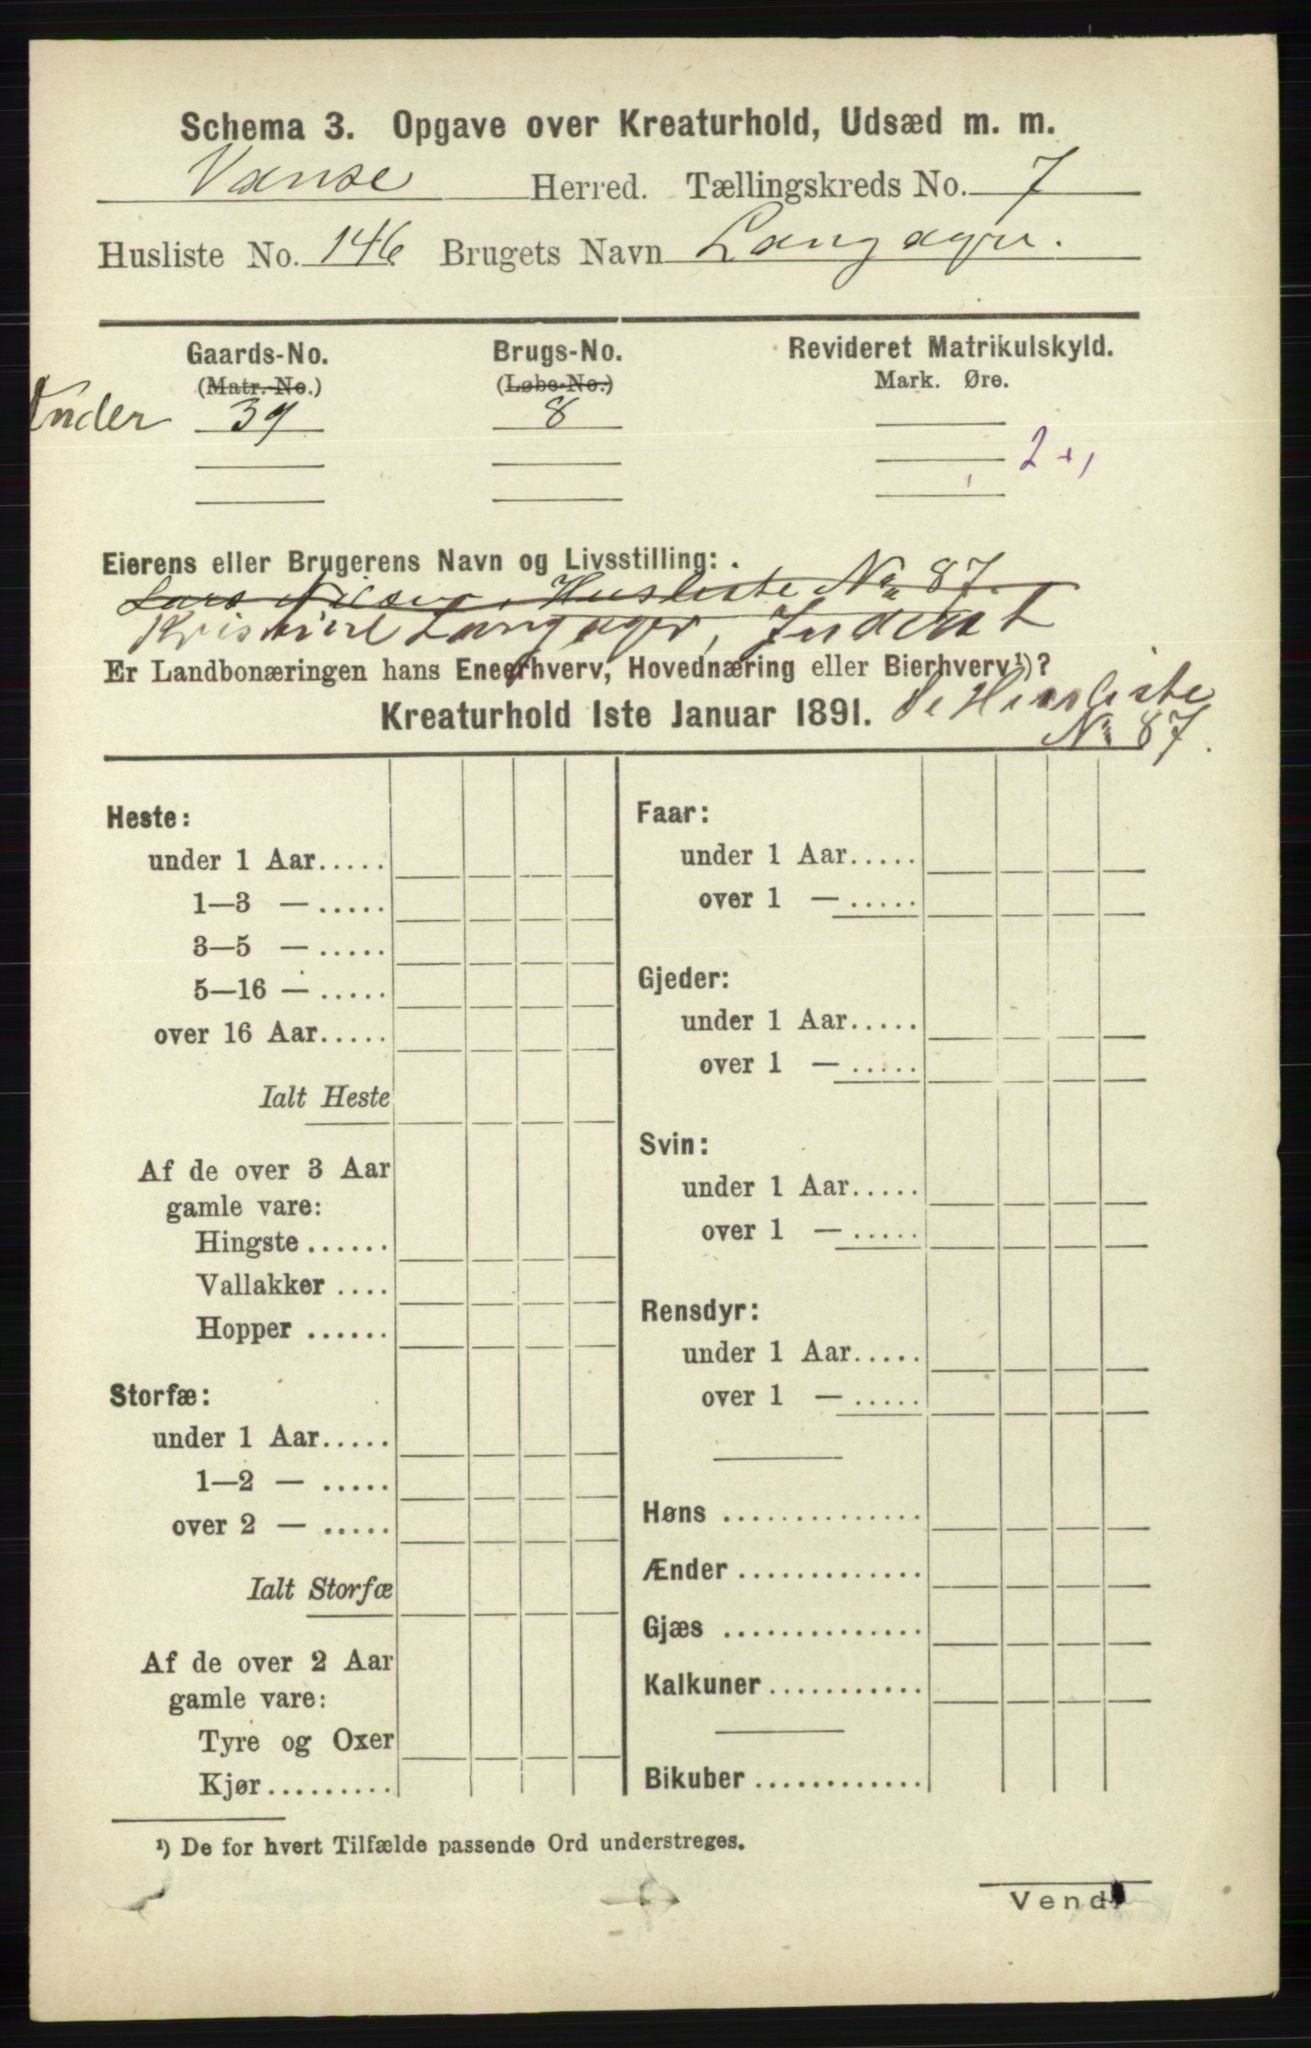 Schema 3. Opgave over Kreaturhold, Udsæd m. m.
Vanse Herred. Tællingskreds No. 7
Husliste No. 146 Brugets Navn Langager.
Gaards-No. Brugs-No. Revideret Matrikulskyld.
(Matr.-No.) (Løbe-No.) Mark. Øre.
Under 39 8
2
Eierens eller Brugerens Navn og Livsstilling:
Lars Nilsen, Husliste No 87.
Kristine Langager, Inderst
Er Landbonæringen hans Eneerhverv, Hovednæring eller Bierhverv¹)?
Kreaturhold 1ste Januar 1891. Se Husliste
No 87.
Heste:
under 1 Aar.....
1—3 — .....
3—5 — .....
5—16 — .....
over 16 Aar.....
Ialt Heste
Af de over 3 Aar
gamle vare:
Hingste ......
Vallakker ....
Hopper ......
Storfæ:
under 1 Aar.....
1—2 — .....
over 2 — .....
Ialt Storfæ
Af de over 2 Aar
gamle vare:
Tyre og Oxer
Kjør.........
Faar:
under 1 Aar.....
over 1 — .....
Gjeder:
under 1 Aar.....
over 1 — .....
Svin:
under 1 Aar.....
over 1 — .....
Rensdyr:
under 1 Aar.....
over 1 — .....
Høns ..............
Ænder .............
Gjæs ..............
Kalkuner...........
Bikuber ............
¹) De for hvert Tilfælde passende Ord understreges.
Vend!